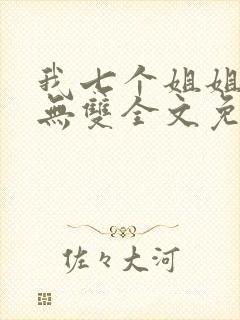 我七个姐姐
無雙全文免
佐々大河